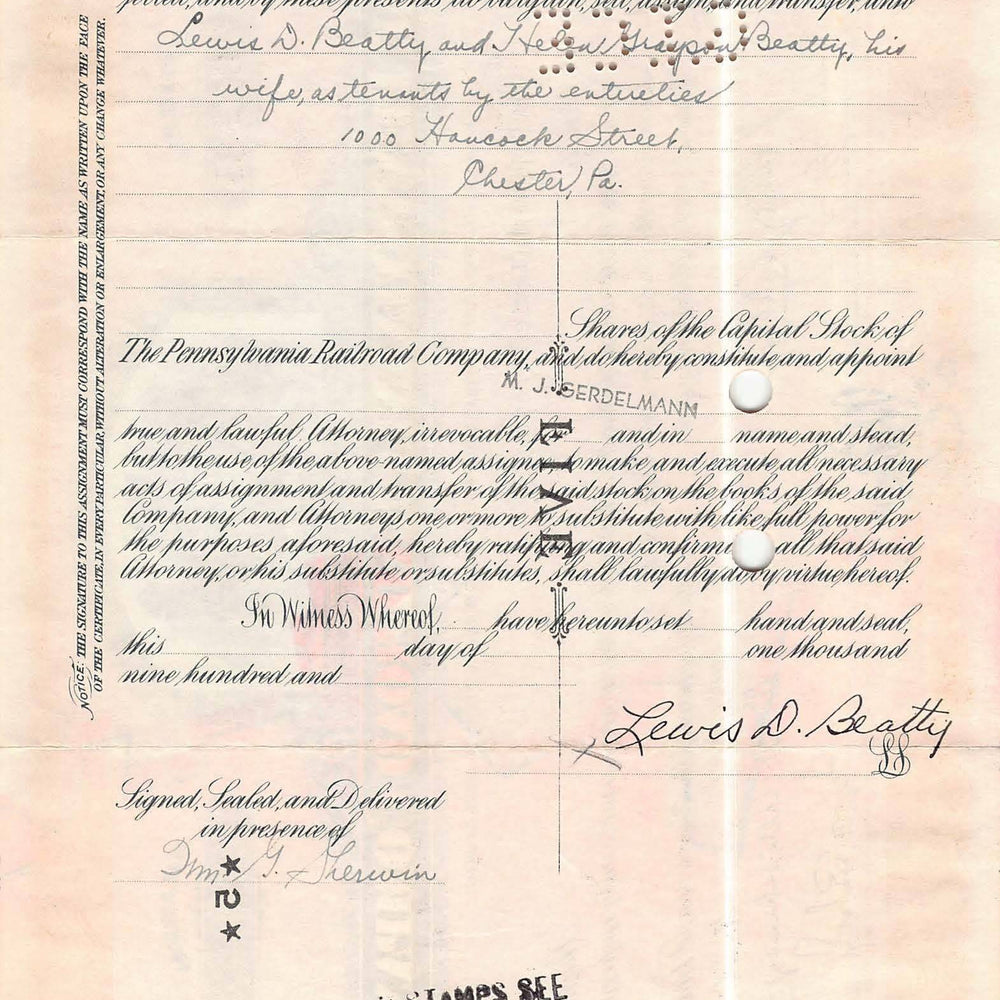 and by these presents do bargain, sell, assign, and transfer, unto
Lewis D. Beatty and Helen Grayson Beatty, his
wife, as tenants by the entireties
1000 Hancock Street,
Chester, Pa.
Shares of the Capital Stock of
The Pennsylvania Railroad Company, and do hereby constitute and appoint
M. J. GERDELMANN
true and lawful Attorney, irrevocable, for and in name and stead,
but to the use of the above-named assignee to make and execute all necessary
acts of assignment and transfer of the said stock on the books of the said
Company, and Attorneys, one or more to substitute with like full power for
the purposes aforesaid, hereby ratifying and confirming all that said
Attorney, or his substitute or substitutes, shall lawfully do by virtue hereof.
FIVE
In Witness Whereof, have hereunto set hand and seal,
this day of one thousand
nine hundred and
Lewis D. Beatty
LS
X
Signed, Sealed, and Delivered
in presence of
Wm G. Sherwin
★ 5 ★
STAMPS SEE
NOTICE: THE SIGNATURE TO THIS ASSIGNMENT MUST CORRESPOND WITH THE NAME AS WRITTEN UPON THE FACE
OF THE CERTIFICATE, IN EVERY PARTICULAR, WITHOUT ALTERATION OR ENLARGEMENT, OR ANY CHANGE WHATEVER.